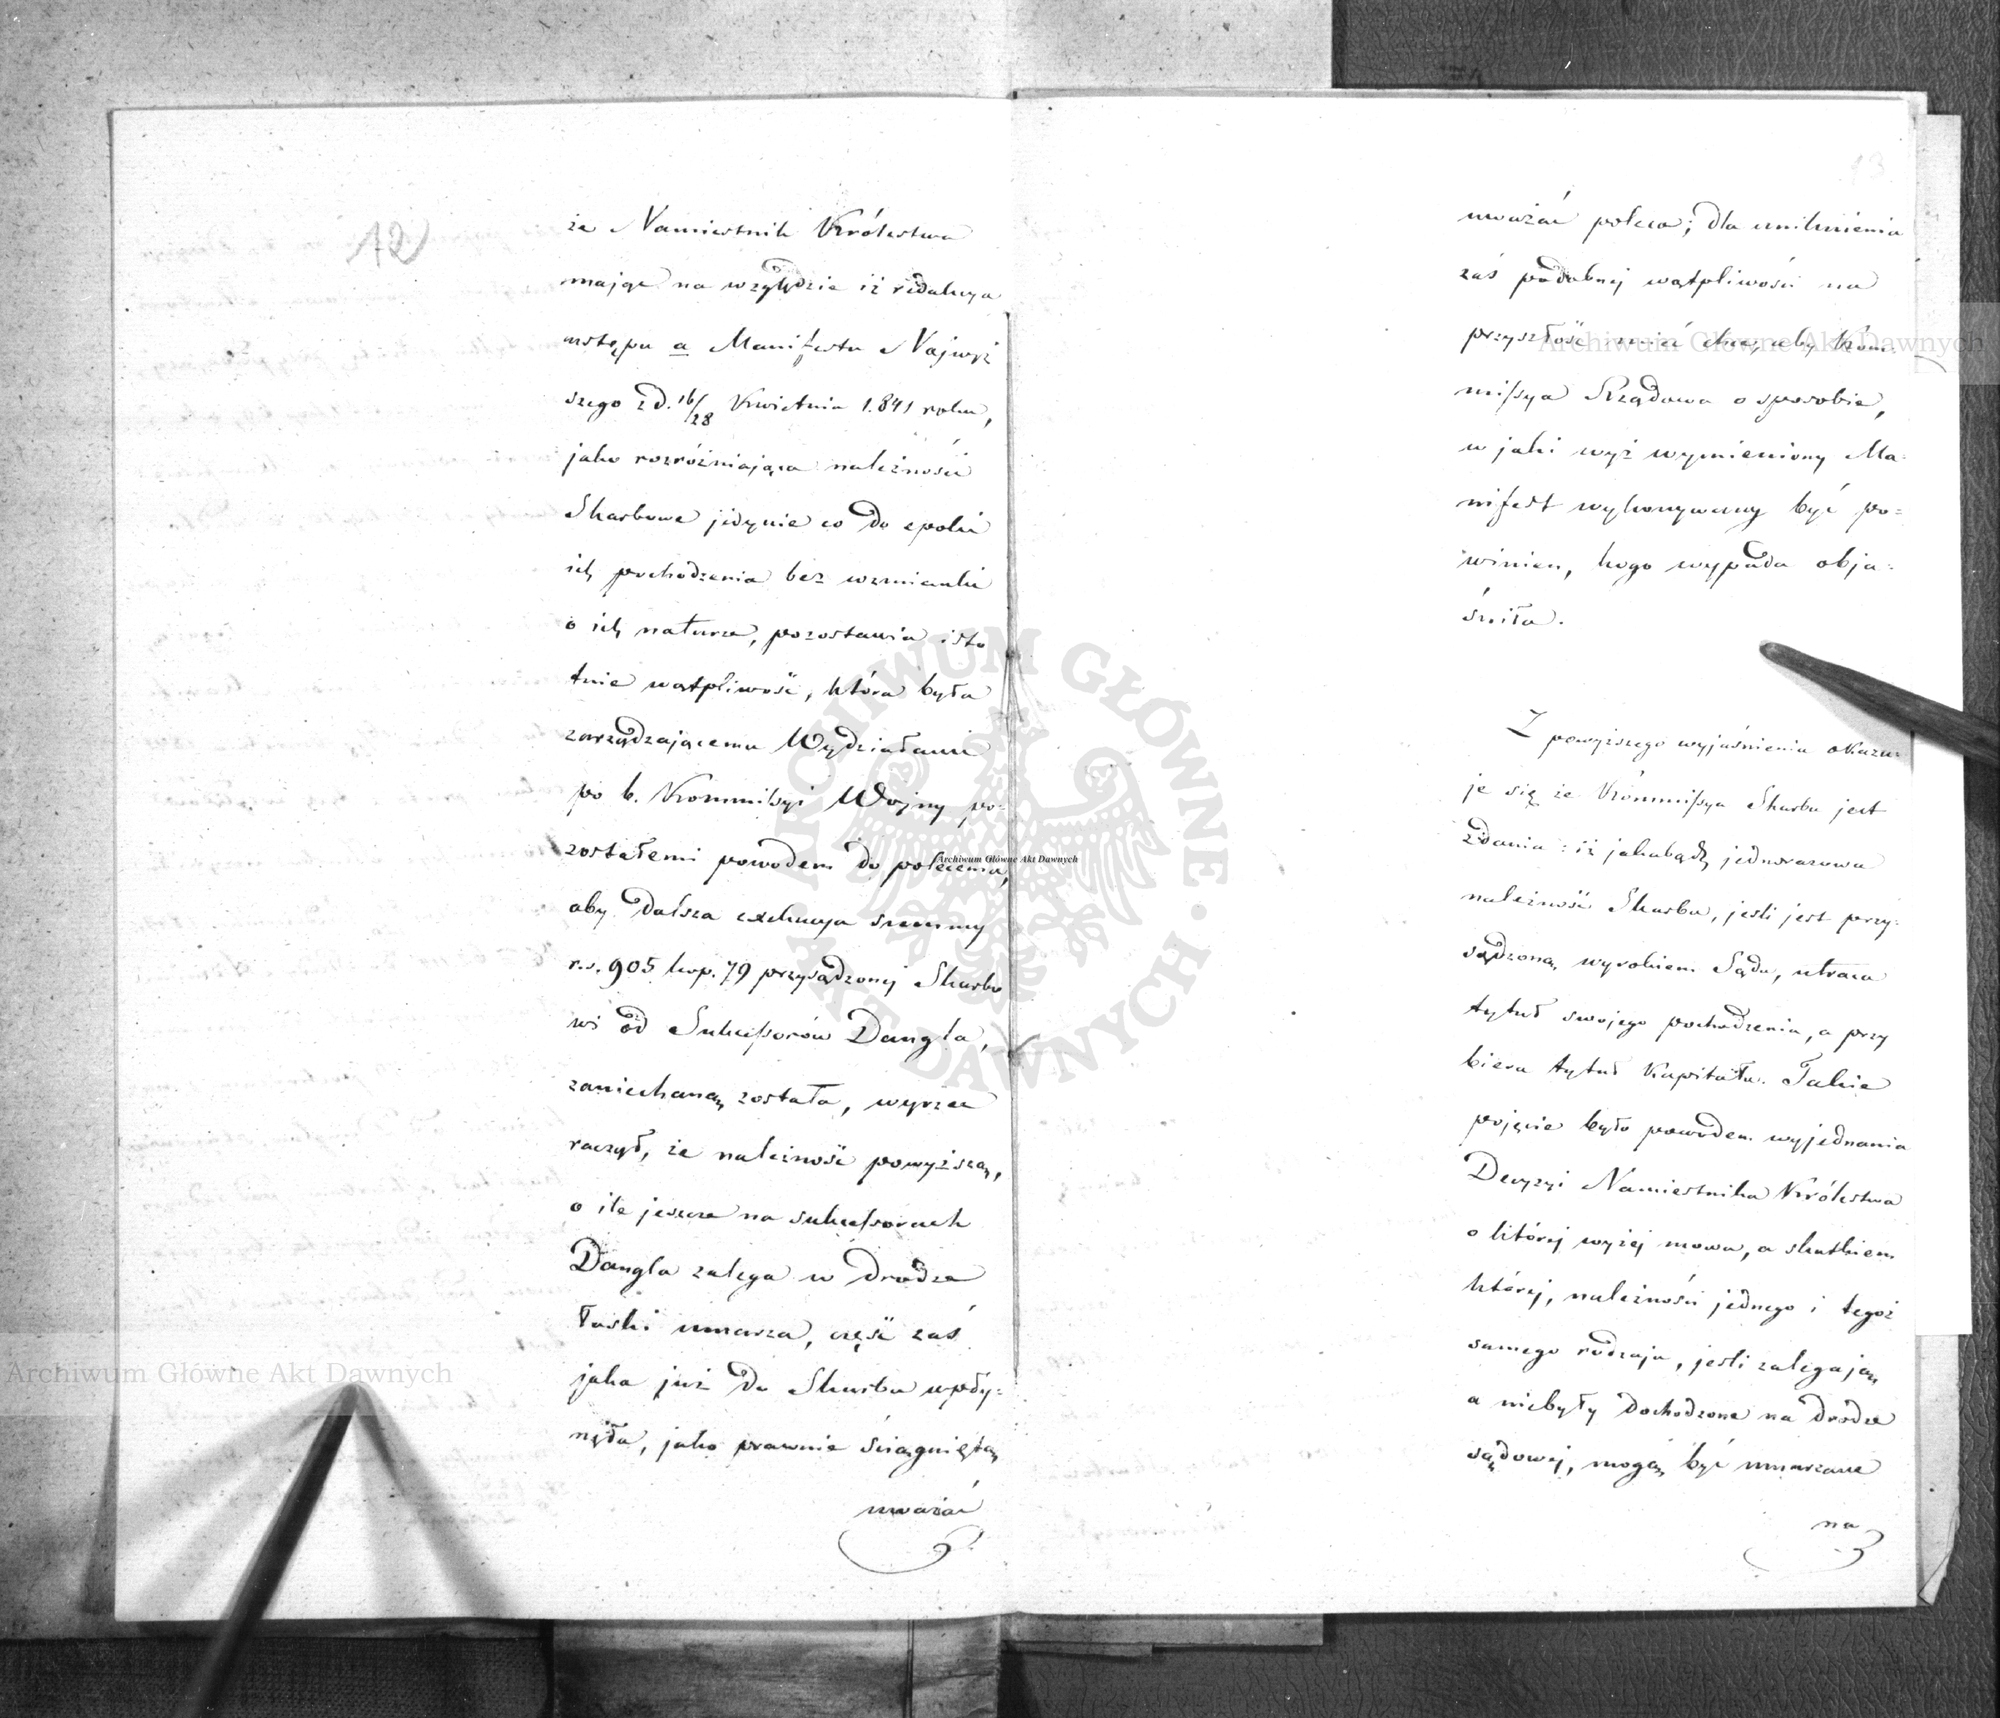 12
że Namiestnik Królestwa
mając na względzie iż redakcya
wstępu a Manifestu Najwyż
szego z d. 16/28 Kwietnia 1.841 roku,
jako rozróżniająca należności
Skarbowe jedynie co do epoki
ich pochodzenia bez wzmianki
o ich naturze, pozostawia isto
tnie wątpliwość, która była
zarządzającemu Wydziałami
po b. Kommissyi Wojny po-
zostałemi powodem do polecenia,
aby dalsza exekucya summy
r.s. 905 kop. 79 przysądzonej Skarbo
wi od Sukcessorów Dangla,
zaniechaną została, wyrzec
raczył, że należność powyższą,
o ile jeszcze na sukcessorach
Dangla zalega w drodze
łaski umarza, część zaś
jaka już do Skarbu wpły-
nęła, jako prawnie ściągniętą
uważać
13
uważać poleca; dla uniknienia
zaś podobnej wątpliwości na
przyszłość mieć chce, aby Kom-
missya Rządowa o sposobie,
w jaki wyż wymieniony Ma-
nifest wykonywany być po=
winien, kogo wypada obja-
śniła.
Z powyższego wyjaśnienia okazu-
je się że Kommissya Skarbu jest
zdania: iż jakabądź jednorazowa
należność Skarbu, jeśli jest przy-
sądzoną wyrokiem Sądu, utraca
tytuł swojego pochodzenia, a przy
biera tytuł Kapitału. Takie
pojęcie było powodem wyjednania
Decyzyi Namiestnika Królestwa
o której wyżej mowa, a skutkiem
której, należności jednego i tegoż
samego rodzaju, jeśli zalegają
a niebyły dochodzone na drodze
sądowej, mogą być umarzane
na
Archiwum Główne Akt Dawnych
Archiwum Główne Akt Dawnych
Archiwum Główne Akt Dawnych
ARCHIWUM GŁÓWNE AKT DAWNYCH